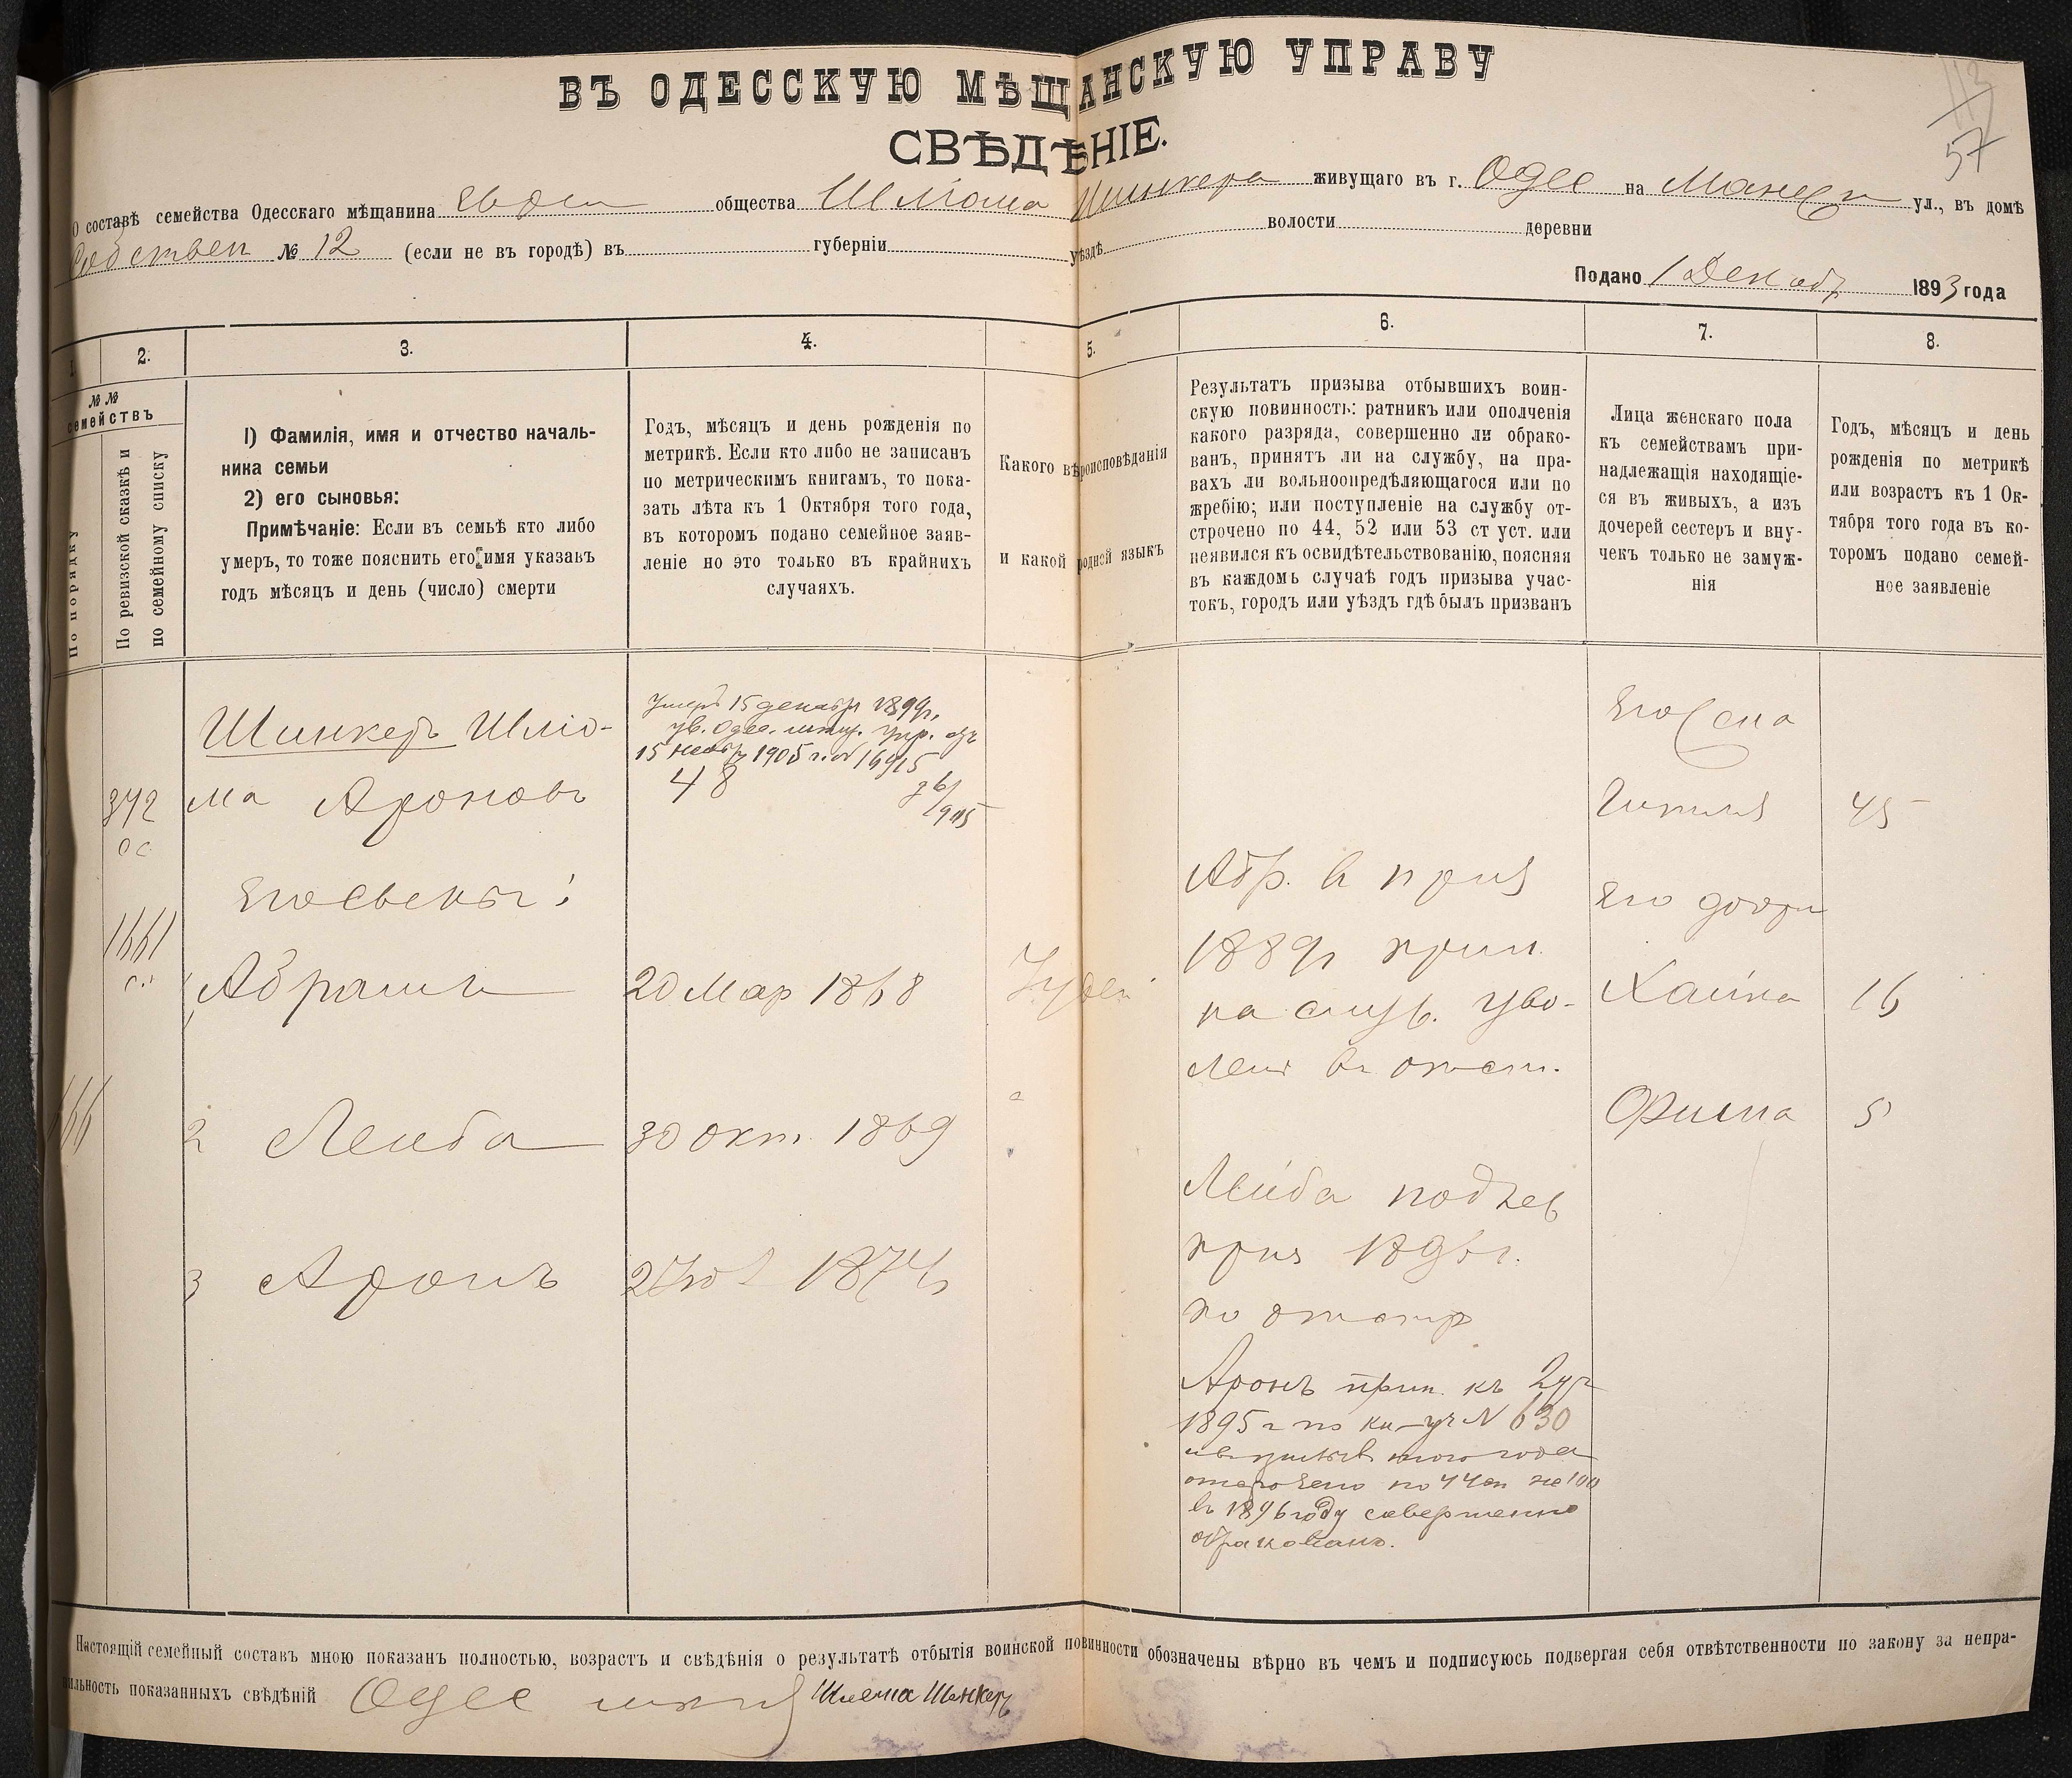 ВЪ ОДЕССКУЮ МѢЩАНСКУЮ УПРАВУ
СВѢДѢНІЕ.
113
57
О составѣ семейства Одесскаго мѣщанина Евр общества Шліома Шинкера живущаго въ г. Одес на Манежн ул., въ домѣ
Собствен № 12 (если не въ городѣ) въ губерніи уѣздѣ волости деревни
Подано 1 Декабр 1893 года
1. 2. 3. 4. 5. 6. 7. 8.
№№
семействъ
По порядку
По ревизской сказкѣ и
по семейному списку
1) Фамилія, имя и отчество началь-
ника семьи
2) его сыновья:
Примѣчаніе: Если въ семьѣ кто либо
умеръ, то тоже пояснить его имя указавъ
годъ мѣсяцъ и день (число) смерти
Годъ, мѣсяцъ и день рожденія по
метрикѣ. Если кто либо не записанъ
по метрическимъ книгамъ, то пока-
зать лѣта къ 1 Октября того года,
въ которомъ подано семейное заяв-
леніе но это только въ крайнихъ
случаяхъ.
Какого вѣроисповѣданія
и какой родной языкъ
Результатъ призыва отбывшихъ воин-
скую повинность: ратникъ или ополченія
какого разряда, совершенно ли обрако-
ванъ, принятъ ли на службу, на пра-
вахъ ли вольноопредѣляющагося или по
жребію; или поступленіе на службу от-
строчено по 44, 52 или 53 ст уст. или
неявился къ освидѣтельствованію, поясняя
въ каждомъ случаѣ годъ призыва учас-
токъ, городъ или уѣздъ гдѣ былъ призванъ
Лица женскаго пола
къ семействамъ при-
надлежащія находящіе-
ся въ живыхъ, а изъ
дочерей сестеръ и вну-
чекъ только не замуж-
нія
Годъ, мѣсяцъ и день
рожденія по метрикѣ
или возрастъ къ 1 Ок-
тября того года въ ко-
торомъ подано семей-
ное заявленіе
372
1661
666
Шинкеръ Шліо-
ма Ароновъ
Его сыновья:
1 Абрамъ
2 Лейба
3 Аронъ
Умеръ 15 декабря 1899г.
ув. Одес. мѣщ. упр. отъ
15 1905 г. № 16915
48
20 Мар 1868
30 окт. 1869
2 1874
Іудей
Абр. въ приз
1889г прин.
на служб. уво-
лен въ отст.
Лейба подлеж
приз 189 г.
по отстр
Аронъ прип. къ 2 уч
1895 г по № 630
того года
отсрочено по 44 ст на 1 год
въ 1896 году совершенно
обракованъ.
Его жена
Гитля 45
Его дочери
Хайка 16
Фима 5
Настоящій семейный составъ мною показанъ полностью, возрастъ и свѣдѣнія о результатѣ отбытія воинской повинности обозначены вѣрно въ чемъ и подписуюсь подвергая себя отвѣтственности по закону за непра-
вильность показанныхъ свѣдѣній Одес Шлема Шинкеръ